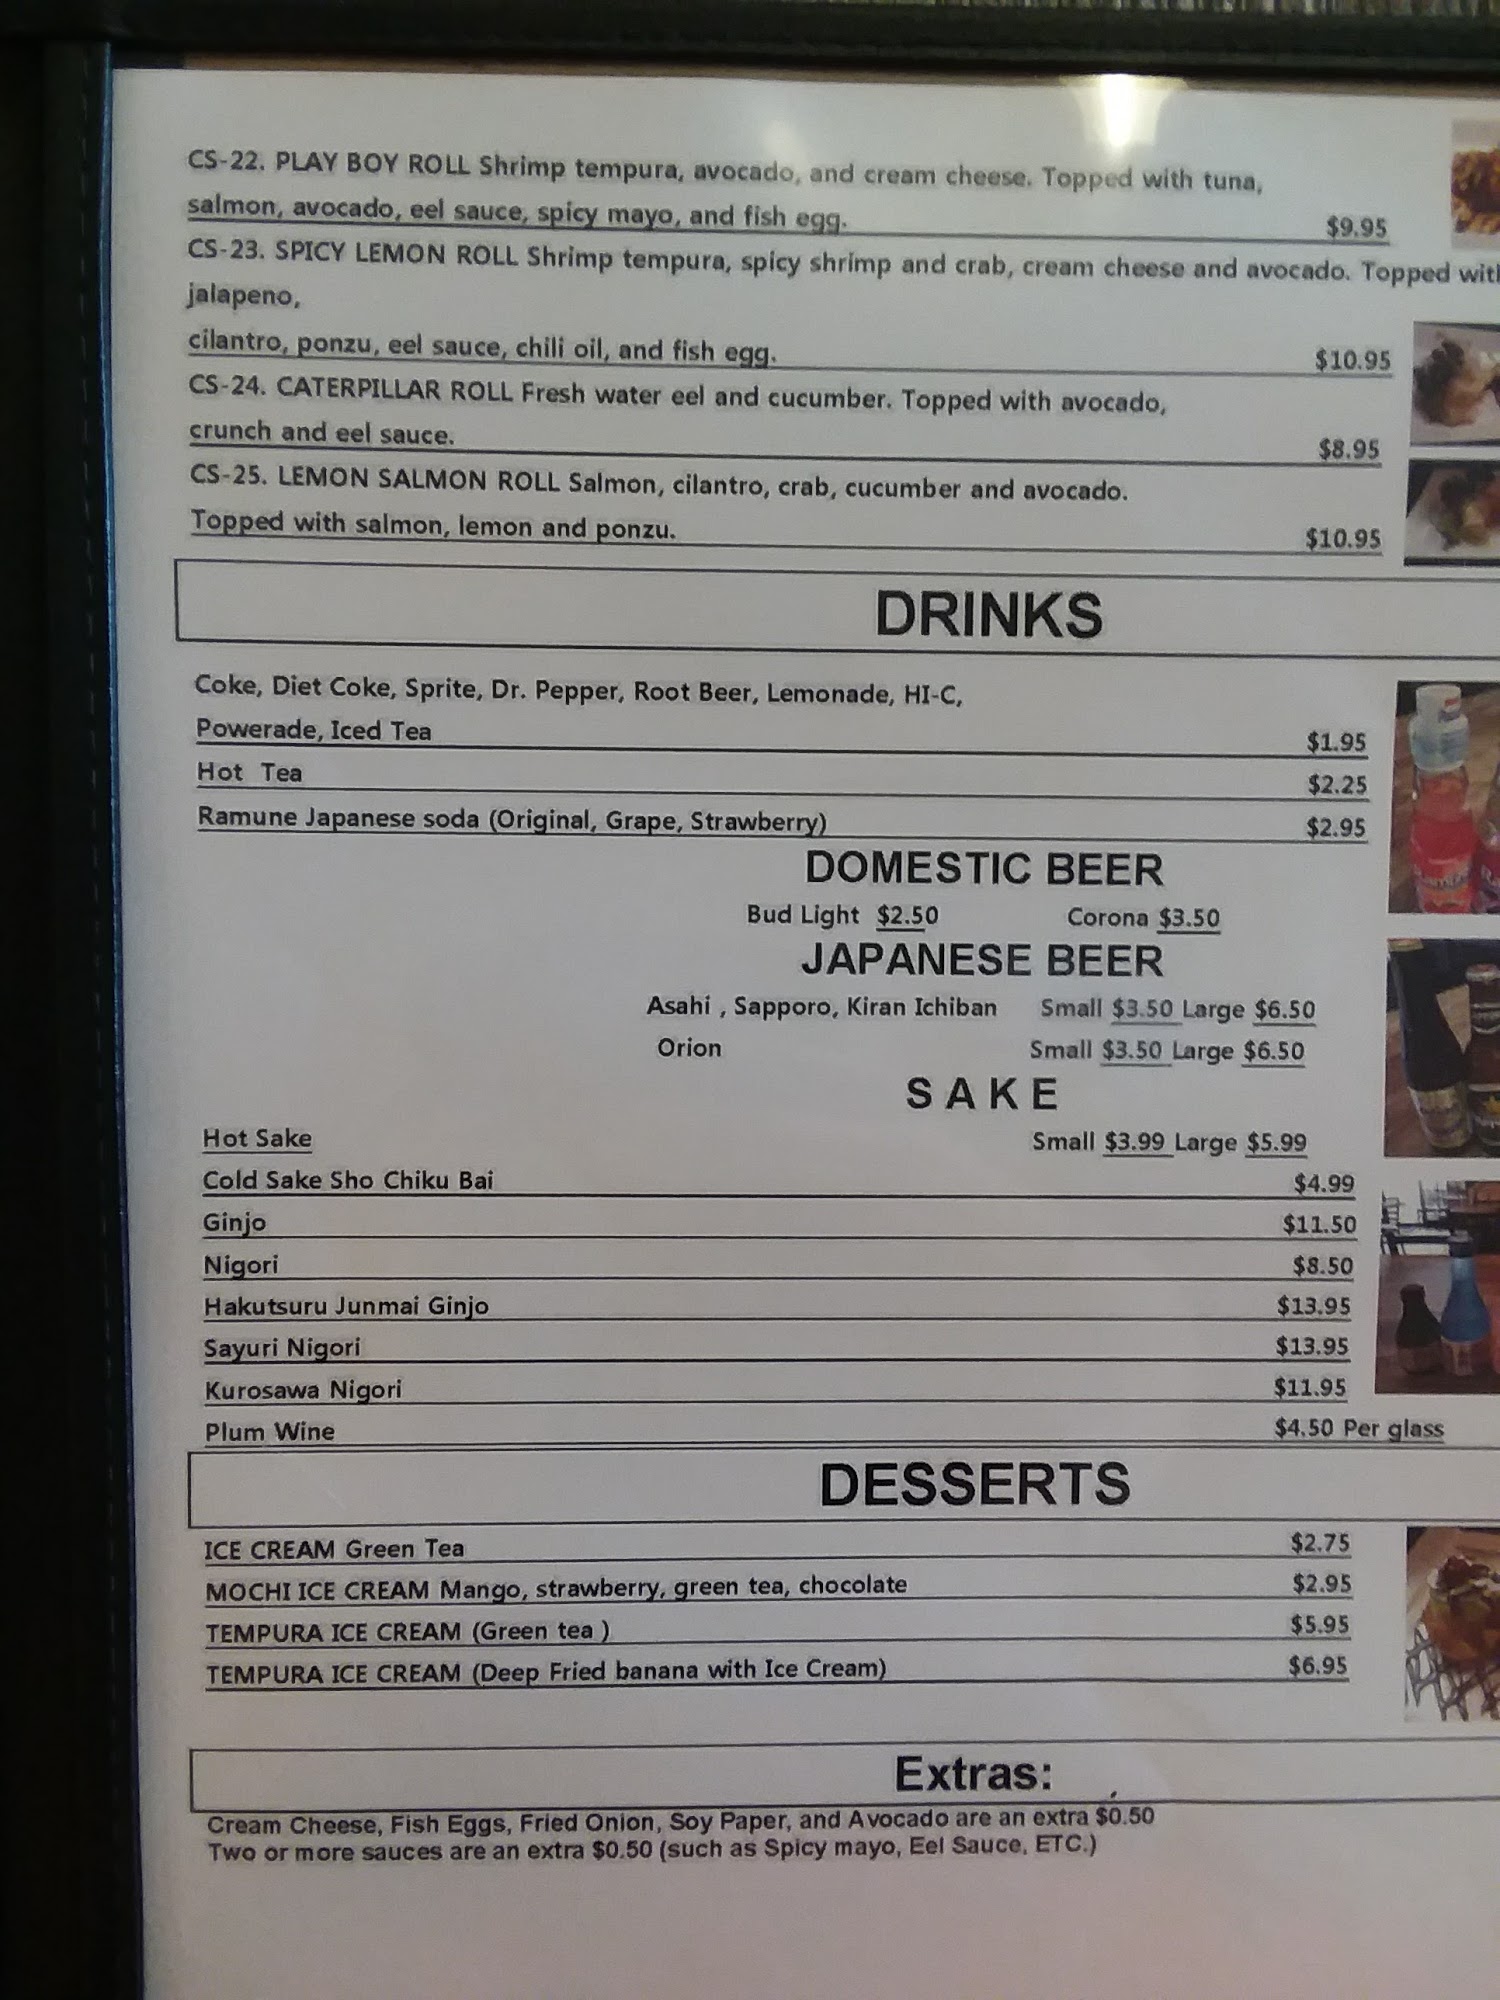 CS-22. PLAY BOY ROLL Shrimp tempura, avocado, and cream cheese. Topped with tuna,
salmon, avocado, eel sauce, spicy mayo, and fish egg. $9.95
CS-23. SPICY LEMON ROLL Shrimp tempura, spicy shrimp and crab, cream cheese and avocado. Topped with
jalapeno,
cilantro, ponzu, eel sauce, chili oil, and fish egg. $10.95
CS-24. CATERPILLAR ROLL Fresh water eel and cucumber. Topped with avocado,
crunch and eel sauce. $8.95
CS-25. LEMON SALMON ROLL Salmon, cilantro, crab, cucumber and avocado.
Topped with salmon, lemon and ponzu. $10.95
DRINKS
Coke, Diet Coke, Sprite, Dr. Pepper, Root Beer, Lemonade, HI-C,
Powerade, Iced Tea $1.95
Hot Tea $2.25
Ramune Japanese soda (Original, Grape, Strawberry) $2.95
DOMESTIC BEER
Bud Light $2.50 Corona $3.50
JAPANESE BEER
Asahi , Sapporo, Kiran Ichiban Small $3.50 Large $6.50
Orion Small $3.50 Large $6.50
S A K E
Hot Sake Small $3.99 Large $5.99
Cold Sake Sho Chiku Bai $4.99
Ginjo $11.50
Nigori $8.50
Hakutsuru Junmai Ginjo $13.95
Sayuri Nigori $13.95
Kurosawa Nigori $11.95
Plum Wine $4.50 Per glass
DESSERTS
ICE CREAM Green Tea $2.75
MOCHI ICE CREAM Mango, strawberry, green tea, chocolate $2.95
TEMPURA ICE CREAM (Green tea ) $5.95
TEMPURA ICE CREAM (Deep Fried banana with Ice Cream) $6.95
Extras:
Cream Cheese, Fish Eggs, Fried Onion, Soy Paper, and Avocado are an extra $0.50
Two or more sauces are an extra $0.50 (such as Spicy mayo, Eel Sauce, ETC.)